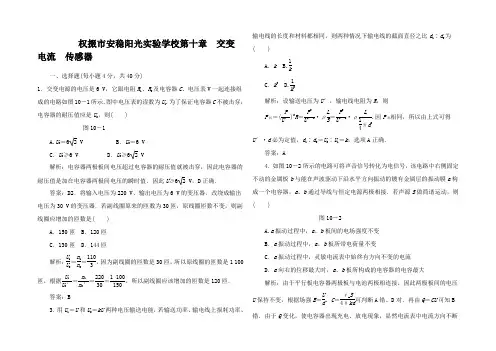 权掇市安稳阳光实验学校第十章 交变
电流 传感器
一、选择题(每小题4分，共40分)
1．交变电源的电压是6 V，它跟电阻R₁、R₂及电容器C、电压表V一起连接组
成的电路如图10－1所示.图中电压表的读数为U₁,为了保证电容器C不被击穿，
电容器的耐压值应是U₂，则( )
图10－1
A.U₁＝6√2 V B．U₁＝6 V
C．U₂≥6 V D．U₂≥6√2 V
解析：电容器两极板间电压超过电容器的耐压值就被击穿，因此电容器的
耐压值是加在电容器两极板间电压的瞬时值．因此U₂≥6√2 V，D正确.
答案：D2．将输入电压为220 V，输出电压为6 V的变压器，改绕成输出
电压为30 V的变压器．若副线圈原来的匝数为30匝，原线圈匝数不变，则副
线圈应增加的匝数是( )
A．150匝 B．120匝
C．130匝 D．144匝
解析：U₁/U₂＝n₁/n₂＝110/3．因为副线圈的匝数是30匝，所以原线圈的匝数是1 100
匝，根据U₁/U₂＝n₁/n₂＝220/30＝1 100/150，所以副线圈应该增加的匝数是120匝.
答案：B
3．用U₁＝U和U₂＝kU两种电压输送电能，若输送功率、输电线上损耗功率、
输电线的长度和材料都相同，则两种情况下输电线的截面直径之比d₁∶d₂为
( )
A．k B.1/k
C．k² D.1/k²
解析：设输送电压为U′，输电线电阻为R，则
4．如图10－2所示的电路可将声音信号转化为电信号，该电路中右侧固定
不动的金属板b与能在声波驱动下沿水平方向振动的镀有金属层的振动膜a构
成一个电容器，a、b通过导线与恒定电源两极相接．若声源S做简谐运动，则
( )
图10－2
A.a振动过程中，a、b板间的电场强度不变
B．a振动过程中，a、b板所带电荷量不变
C．a振动过程中，灵敏电流表中始终有方向不变的电流
D．a向右的位移最大时，a、b板所构成的电容器的电容最大
解析：由于平行板电容器两极板与电池两极相连接，因此两极板间的电压
错，由于Q变化，使电容器出现充电、放电现象，显然电流表中电流方向不断